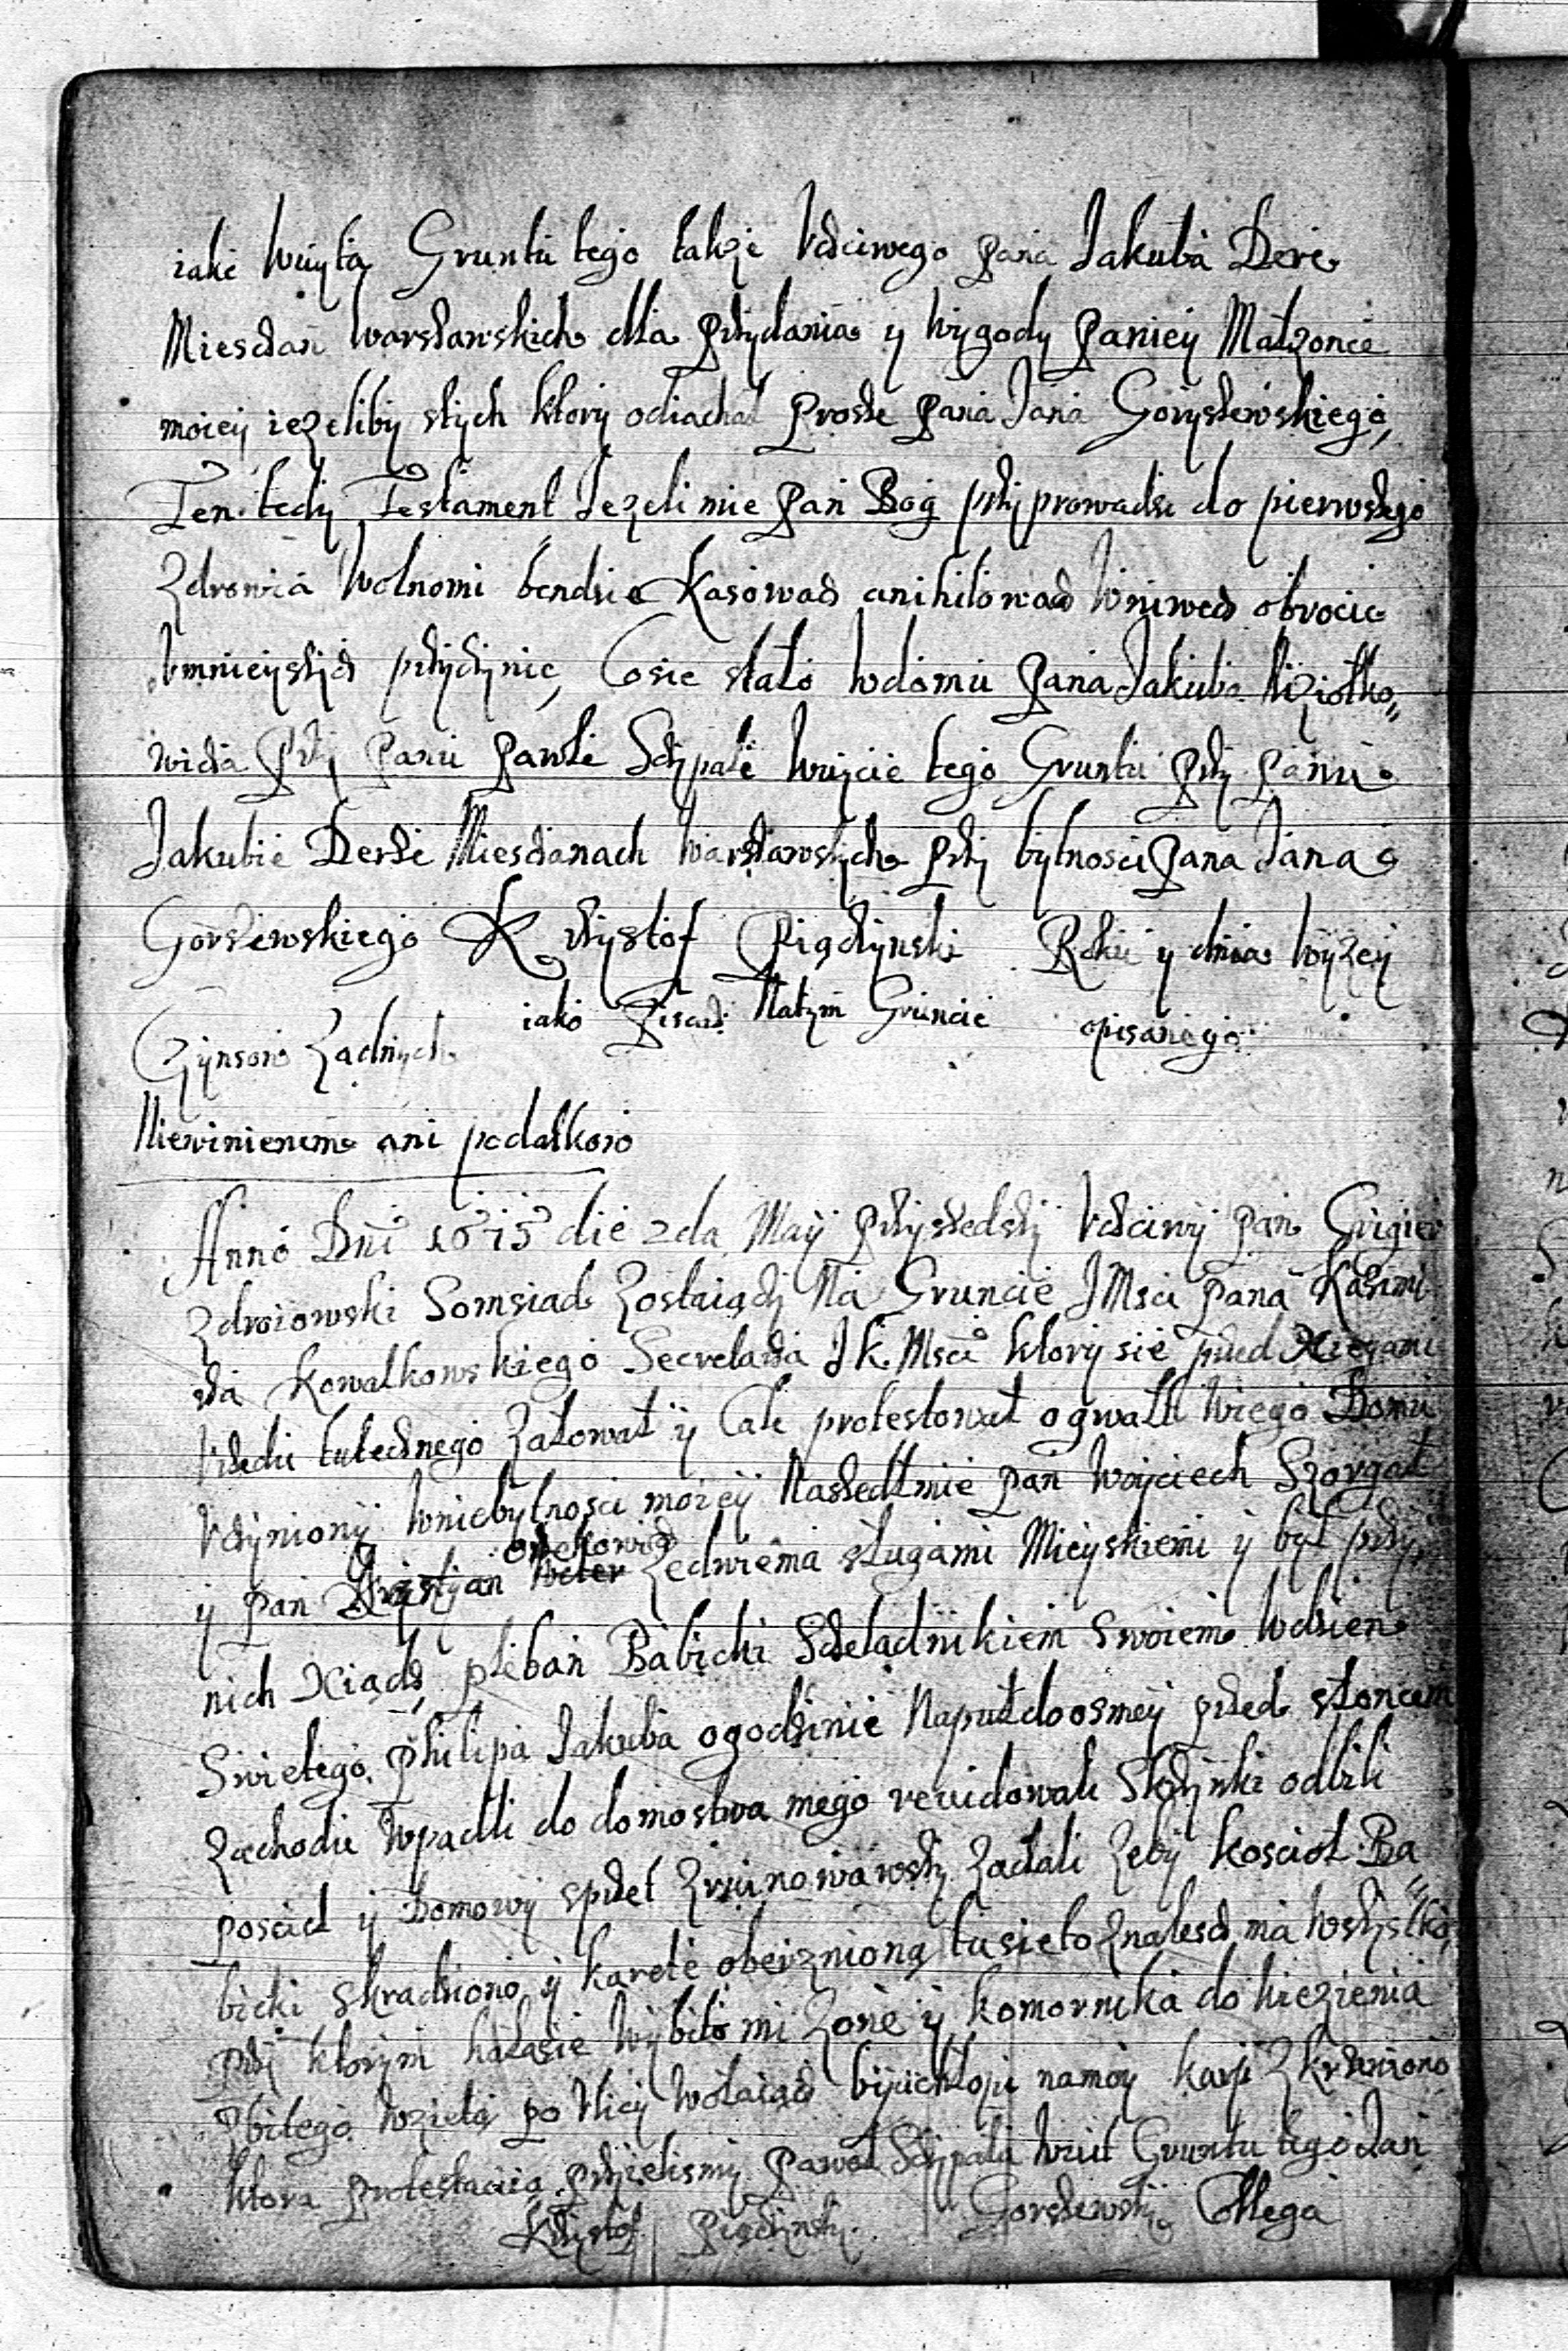 iako Wuyta Gruntu tego takze Vcciwego Pana Jakuba Dere
Miesczan Warszawskich dla przydania y Wygody Paniey Małzonce
moiey iezeliby stych ktory odiachał Prosze Pana Jana Goryszewskiego,
Ten tedy Testament Jezeli mie Pan Bog przyprowadzi do pierwszego
Zdrowia Wolnomi bendzie Kasowacz anihilowacz Wniwecz obrocic
Vmnieyszycz przyczynic, Cosie stało Wdomu Pana Jakuba Niziołko„
wicza Przy Panu Pawle Sczypale Wuycie tego Gruntu Przy Panu
Jakubie Derze Miesczanach Warszawskych Przy bytnosci Pana Jana
Gorszewskiego Krzystof Pigczynski Roku y dnia Wyzey
iako Pisarz Natym Gruncie opisanego
Czynszow Zadnych
Niewinienem ani podatkow
Anno Dni 1675 die 2da Maij Przyszedszy Vcciwy Pan Grigier
Zdroiowski Somsiad Zostaiący Na Gruncie JMsci Pana Kazimi
rza Kowalkowskiego Secretarza J K. Msci ktory sie przed Xiegami
Vrzedu tutecznego Załował y Cale protestował ogwałt Wiego Domu
Vczyniony Wniebytnosci moiey Naszedłmie Pan Woyciech Szorgał
orzechowicz
y Pan Krzystyan Weter Zedwiema sługami Mieyskiemi y był przy
nich Xiądz pleban Babicki Sczeladnikiem Swoiem Wdzien
Swietego Philipa Jakuba ogodzinie Napułdoosmey przed słoncem
Zachodu Wpadli do domostwa mego rewidowali Skrzynki odbili
posciel y Domowy sprzet Zruinowawszy Zadali Zeby koscioł Ba„
bicki skradziono y karete oberzniono tusieto Znalescz ma Wszystko,
przy ktorym hałasie Wybito mi Zone y komornika do Wiezienia
Zbitego Wzieto po Vlicy Wołaiącz byicie chłopi namoy karji Zkrwiono
Ktora protestacią przyielismy Paweł Sczypała Wuit Gruntu tego Jan
Krzystof Pigczynsky Gorszewsky Collega